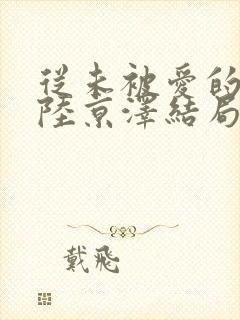 從未被愛的
陸京澤結局
戴飛